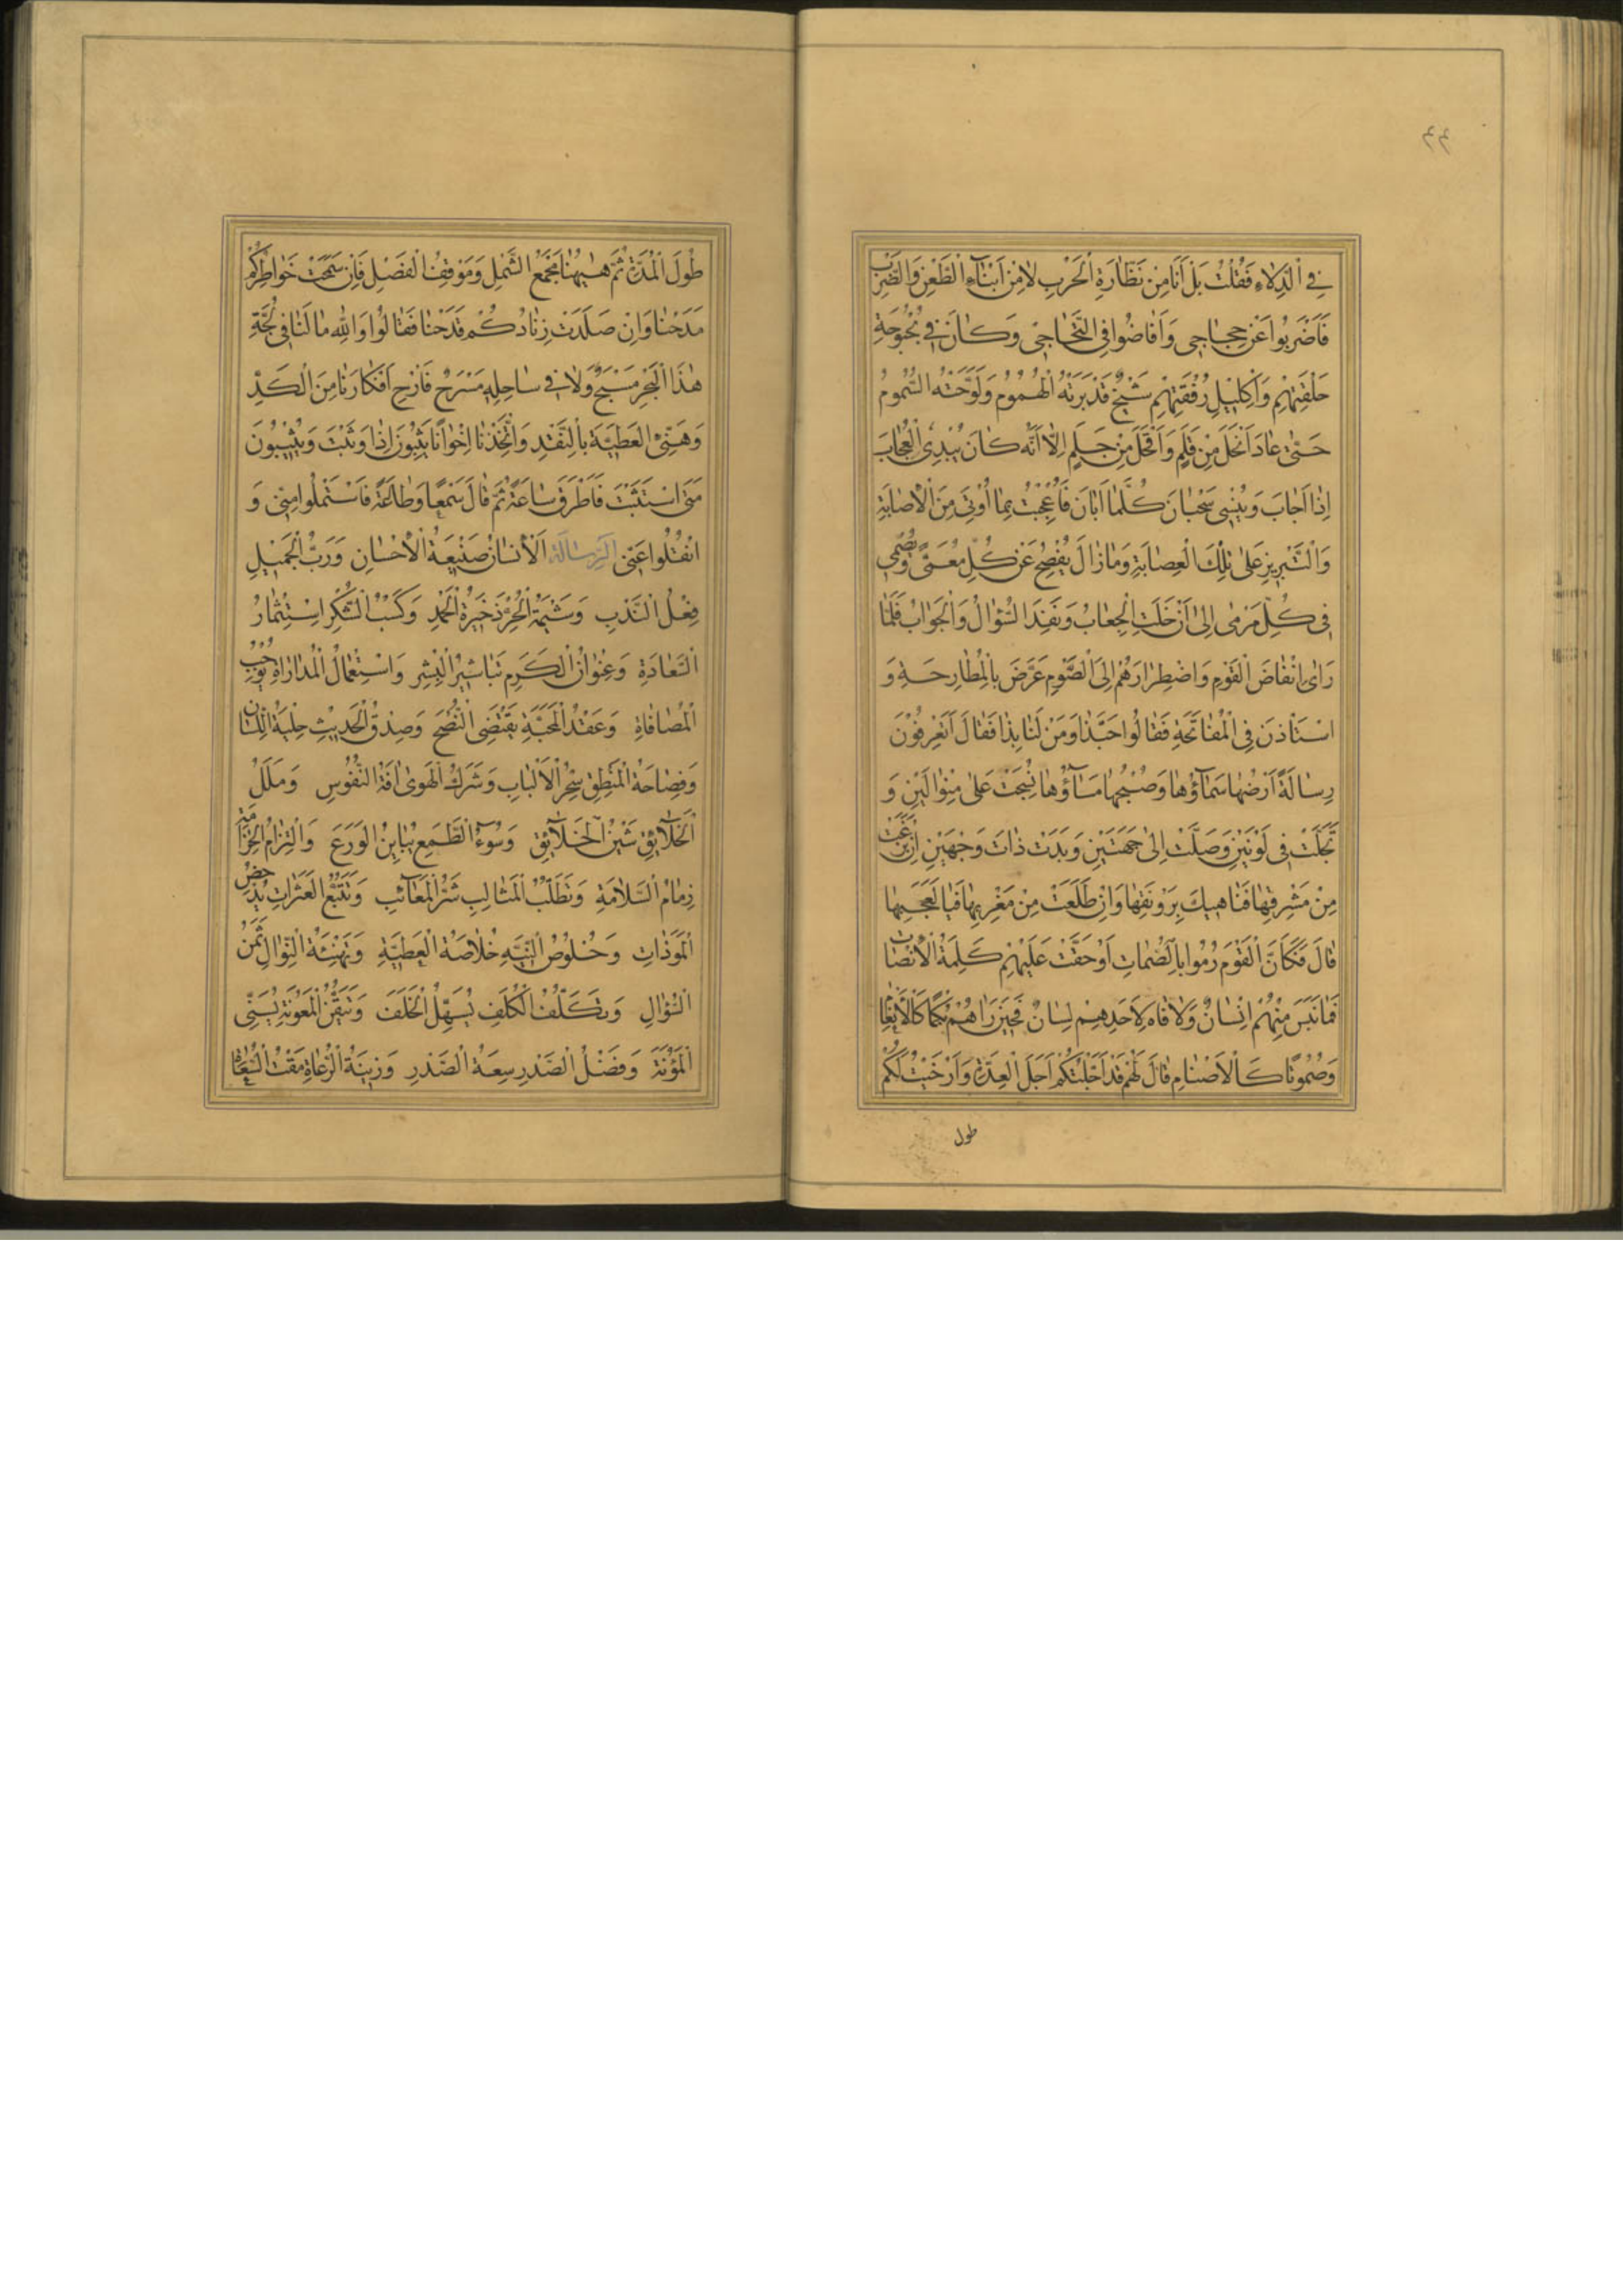 ٤٤
فِي الدِّلَاءِ فَقُلْتُ بَلْ أَنَا مِنْ نَظَّارَةِ الْحَرْبِ لَا مِنْ أَبْنَاءِ الطَّعْنِ وَالضَّرْبِ
فَأَضْرَبُوا عَنْ حِجَاجِي وَأَفَاضُوا فِي التَّحَاجِي وَكَانَ فِي بُحْبُوحَةِ
حَلْقَتِهِمْ وَإِكْلِيلِ رُفْقَتِهِمْ شَيْخٌ قَدْ بَرَتْهُ الْهُمُومُ وَلَوَّحَتْهُ السَّمُومُ
حَتَّى عَادَ أَنْحَلَ مِنْ قَلَمٍ وَأَقْحَلَ مِنْ جَلَمٍ إِلَّا أَنَّهُ كَانَ يُبْدِي الْعُجَابَ
إِذَا أَجَابَ وَيُنْسِي سَحْبَانَ كُلَّمَا أَبَانَ فَأُعْجِبْتُ بِمَا أُوتِيَ مِنَ الْإِصَابَةِ
وَالتَّبْرِيزِ عَلَى تِلْكَ الْعِصَابَةِ وَمَا زَالَ يُفْصِحُ عَنْ كُلِّ مُعَمًّى وَيُصْمِي
فِي كُلِّ مَرْمًى إِلَى أَنْ خَلَتِ الْجِعَابُ وَنَفِدَ السُّؤَالُ وَالْجَوَابُ فَلَمَّا
رَأَى إِنْفَاضَ الْقَوْمِ وَاضْطِرَارَهُمْ إِلَى الصَّوْمِ عَرَّضَ بِالْمُطَارَحَةِ وَ
اسْتَأْذَنَ فِي الْمُفَاتَحَةِ فَقَالُوا حَبَّذَا وَمَنْ لَنَا بِذَا فَقَالَ أَتَعْرِفُونَ
رِسَالَةً أَرْضُهَا سَمَاؤُهَا وَصُبْحُهَا مَسَاؤُهَا نُسِجَتْ عَلَى مِنْوَالَيْنِ وَ
تَجَلَّتْ فِي لَوْنَيْنِ وَصَلَّتْ إِلَى جِهَتَيْنِ وَبَدَتْ ذَاتَ وَجْهَيْنِ إِنْ بَزَغَتْ
مِنْ مَشْرِقِهَا فَنَاهِيكَ بِرَوْنَقِهَا وَإِنْ طَلَعَتْ مِنْ مَغْرِبِهَا فَيَا لَعَجَبِهَا
قَالَ فَكَأَنَّ الْقَوْمَ رُمُوا بِالصُّمَاتِ أَوْ حَقَّتْ عَلَيْهِمْ كَلِمَةُ الْإِنْصَاتِ
فَمَا نَبَسَ مِنْهُمْ إِنْسَانٌ وَلَا فَاهَ لِأَحَدِهِمْ لِسَانٌ فَحِينَ رَآهُمْ بُكْمًا كَالْأَنْعَامِ
وَصُمُوتًا كَالْأَصْنَامِ قَالَ لَهُمْ قَدْ أَجَّلْتُكُمْ أَجَلَ الْعِدَّةِ وَأَرْخَيْتُ لَكُمْ
طول
طُولَ الْمُدَّةِ ثُمَّ هٰيهُنَا مَجْمَعُ الشَّمْلِ وَمَوْقِفُ الْفَصْلِ فَإِنْ سَمَحَتْ خَوَاطِرُكُمْ
مَدَحْنَا وَإِنْ صَلَدَتْ زِنَادُكُمْ قَدَحْنَا فَقَالُوا وَاللهِ مَا لَنَا فِي لُجَّةِ
هٰذَا الْبَحْرِ مَسْبَحٌ وَلَا فِي سَاحِلِهِ مَسْرَحٌ فَأَرِحْ أَفْكَارَنَا مِنَ الْكَدِّ
وَهَنِّئِ الْعَطِيَّةَ بِالنَّقْدِ وَاتَّخِذْنَا إِخْوَانًا يَثِبُونَ إِذَا وَثَبْتَ وَيُثِيبُونَ
مَتَى اسْتَثَبْتَ فَأَطْرَقَ سَاعَةً ثُمَّ قَالَ سَمْعًا وَطَاعَةً فَاسْتَمْلُوا مِنِّي وَ
انْقُلُوا عَنِّي الرِّسَالَةَ الْإِنْسَانُ صَنِيعَةُ الْإِحْسَانِ وَرَبُّ الْجَمِيلِ
فِعْلُ النَّدْبِ وَشِيمَةُ الْحُرِّ ذَخِيرَةُ الْحَمْدِ وَكَسْبُ الشُّكْرِ اسْتِثْمَارُ
السَّعَادَةِ وَعُنْوَانُ الْكَرَمِ تَبَاشِيرُ الْبِشْرِ وَاسْتِعْمَالُ الْمُدَارَاةِ يُوجِبُ
الْمُصَافَاةَ وَعَقْدُ الْمَحَبَّةِ يَقْتَضِي النُّصْحَ وَصِدْقُ الْحَدِيثِ حِلْيَةُ اللِّسَانِ
وَفَصَاحَةُ الْمَنْطِقِ سِحْرُ الْأَلْبَابِ وَشَرَكُ الْهَوَى آفَةُ النُّفُوسِ وَمَلَلُ
الْخَلَائِقِ شَيْنُ الْخَلَائِقِ وَسُوءُ الطَّمَعِ يُبَايِنُ الْوَرَعَ وَالْتِزَامُ الْحَزَامَةِ
زِمَامُ السَّلَامَةِ وَتَطَلُّبُ الْمَثَالِبِ شَرُّ الْمَعَائِبِ وَتَتَبُّعُ الْعَثَرَاتِ يُدْحِضُ
الْمَوَدَّاتِ وَخُلُوصُ النِّيَّةِ خُلَاصَةُ الْعَطِيَّةِ وَتَهْنِئَةُ النَّوَالِ ثَمَنُ
السُّؤَالِ وَتَكَلُّفُ الْكُلَفِ يُسَهِّلُ الْخَلَفَ وَتَيَقُّنُ الْمَعُونَةِ يُسَنِّي
الْمَؤُنَةَ وَفَضْلُ الصَّدْرِ سِعَةُ الصَّدْرِ وَزِينَةُ الرُّعَاةِ مَقْتُ السُّعَاةِ